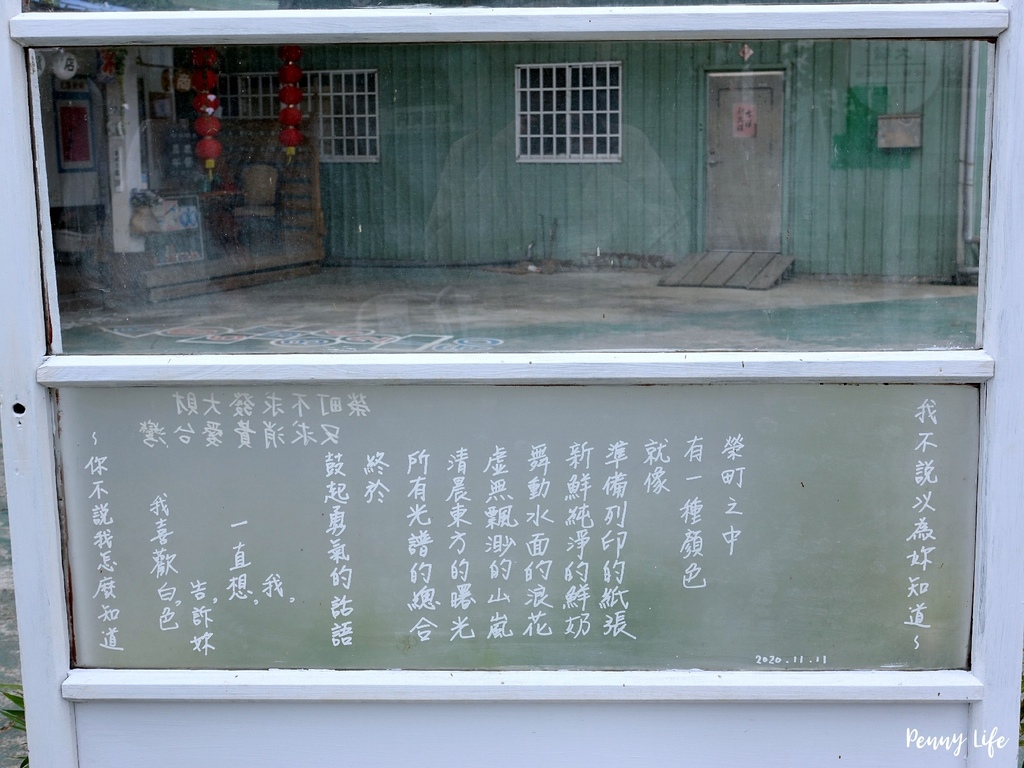 我不說以為妳知道~
榮町之中
有一種顏色
就像
準備列印的紙張
新鮮純淨的鮮奶
舞動水面的浪花
虛無飄渺的山嵐
清晨東方的曙光
所有光譜的總合
終於
鼓起勇氣的話語
我,
一直想,
告訴妳,
我喜歡白色,
~你不說我怎麼知道
榮町不求發大財
又求消費愛台灣
2020.11.11
店
Penny Life